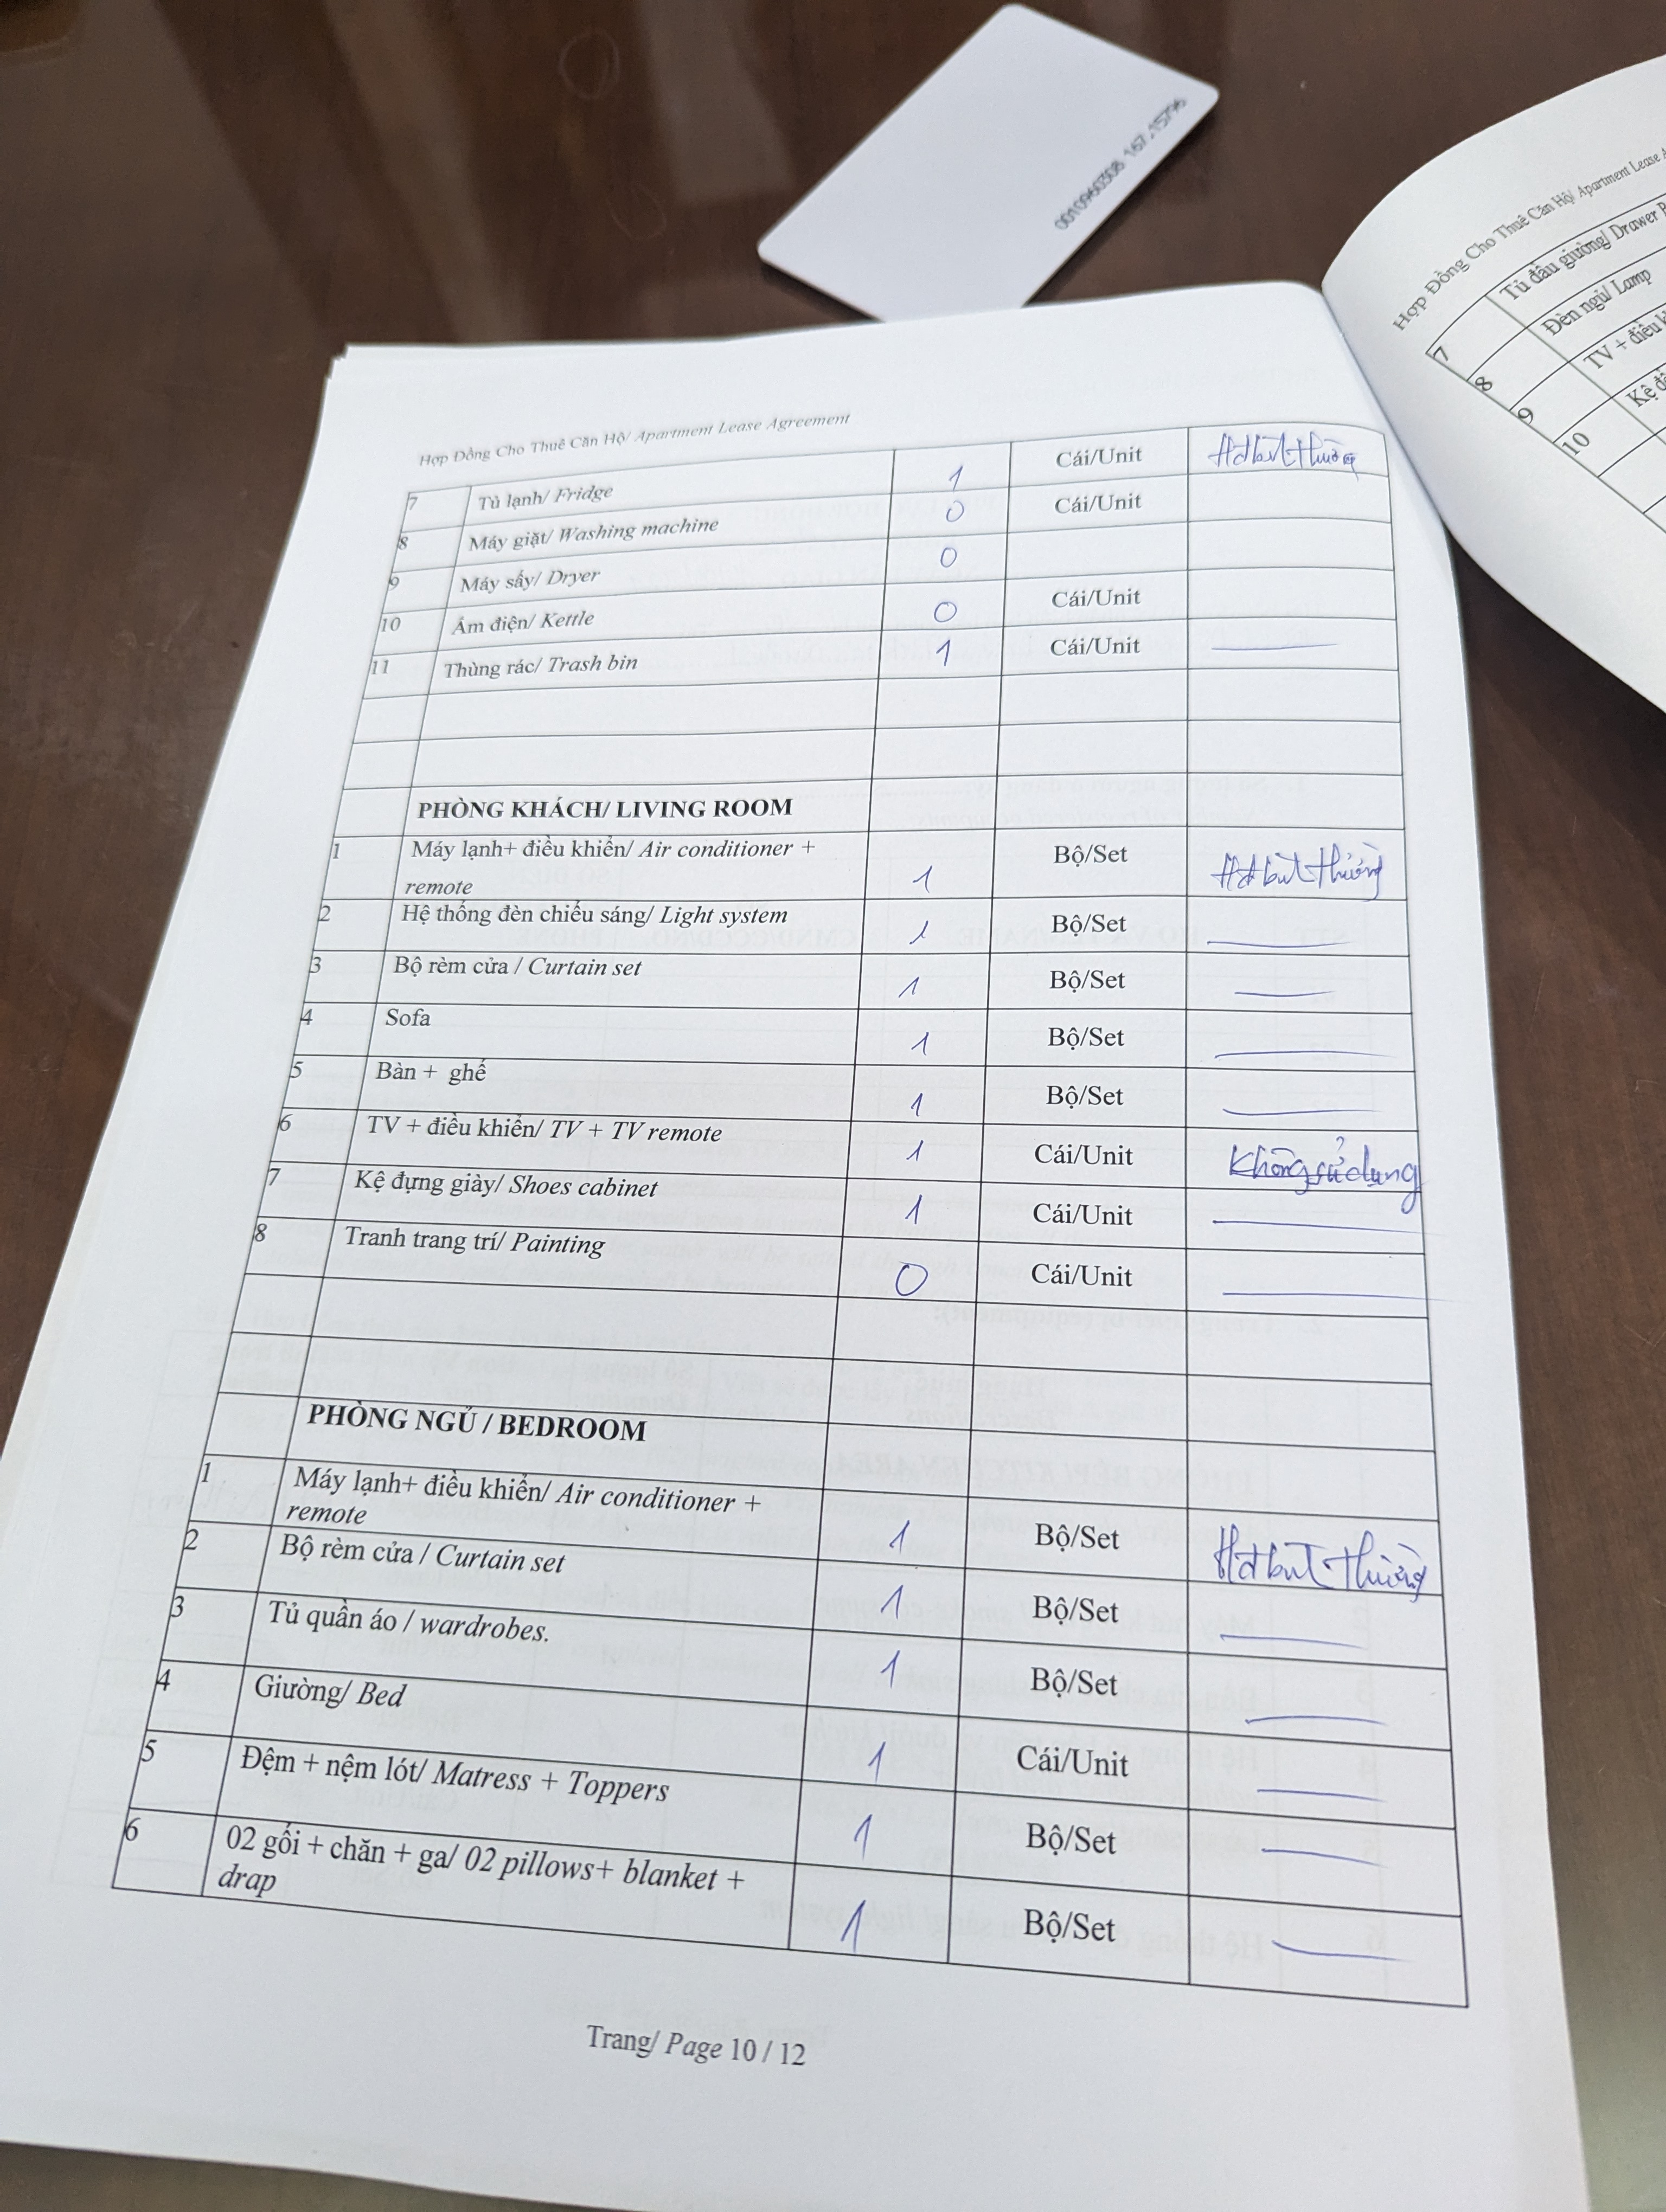 0010960308 167.15796
Hợp Đồng Cho Thuê Căn Hộ/ Apartment Lease Agreement
7 Tủ lạnh/ Fridge 1 Cái/Unit Hđ bình thường
8 Máy giặt/ Washing machine 0 Cái/Unit
9 Máy sấy/ Dryer 0
10 Ấm điện/ Kettle 0 Cái/Unit
11 Thùng rác/ Trash bin 1 Cái/Unit
PHÒNG KHÁCH/ LIVING ROOM
1 Máy lạnh+ điều khiển/ Air conditioner +
remote 1 Bộ/Set Hđ bình thường
2 Hệ thống đèn chiếu sáng/ Light system 1 Bộ/Set
3 Bộ rèm cửa / Curtain set 1 Bộ/Set
4 Sofa 1 Bộ/Set
5 Bàn + ghế 1 Bộ/Set
6 TV + điều khiển/ TV + TV remote 1 Cái/Unit Không sử dụng
7 Kệ đựng giày/ Shoes cabinet 1 Cái/Unit
8 Tranh trang trí/ Painting 0 Cái/Unit
PHÒNG NGỦ / BEDROOM
1 Máy lạnh+ điều khiển/ Air conditioner +
remote 1 Bộ/Set Hđ bình thường
2 Bộ rèm cửa / Curtain set 1 Bộ/Set
3 Tủ quần áo / wardrobes. 1 Bộ/Set
4 Giường/ Bed 1 Cái/Unit
5 Đệm + nệm lót/ Matress + Toppers 1 Bộ/Set
6 02 gối + chăn + ga/ 02 pillows+ blanket +
drap 1 Bộ/Set
Trang/ Page 10 / 12
Hợp Đồng Cho Thuê Căn Hộ/ Apartment Lease
7 Tủ đầu giường/ Drawer
8 Đèn ngủ/ Lamp
9 TV + điều
10 Kệ